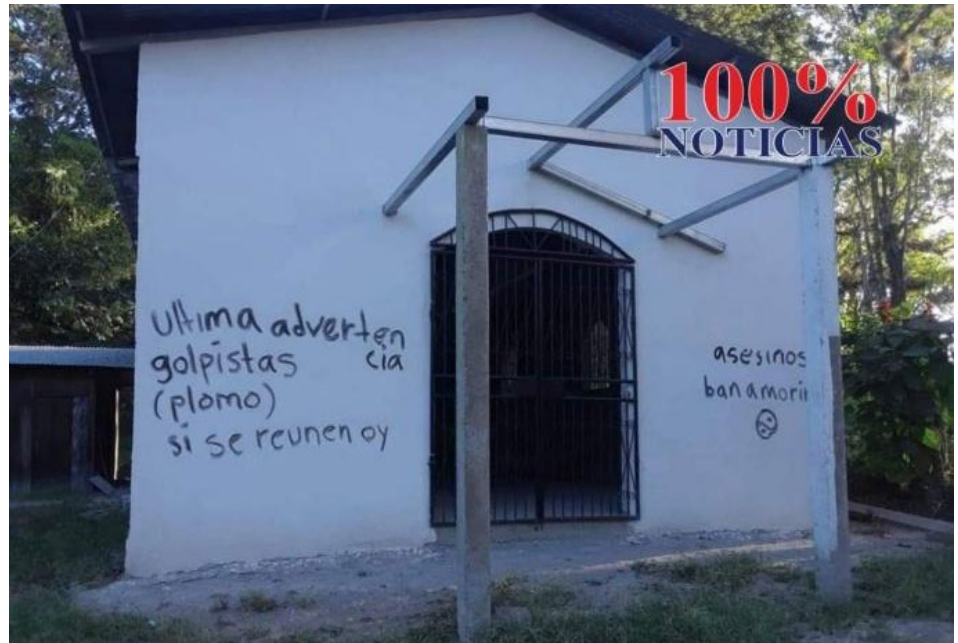 100%
NOTICIAS
Ultima adverten
cia
golpistas
(plomo)
si se reunen oy
asesinos
ban amorir